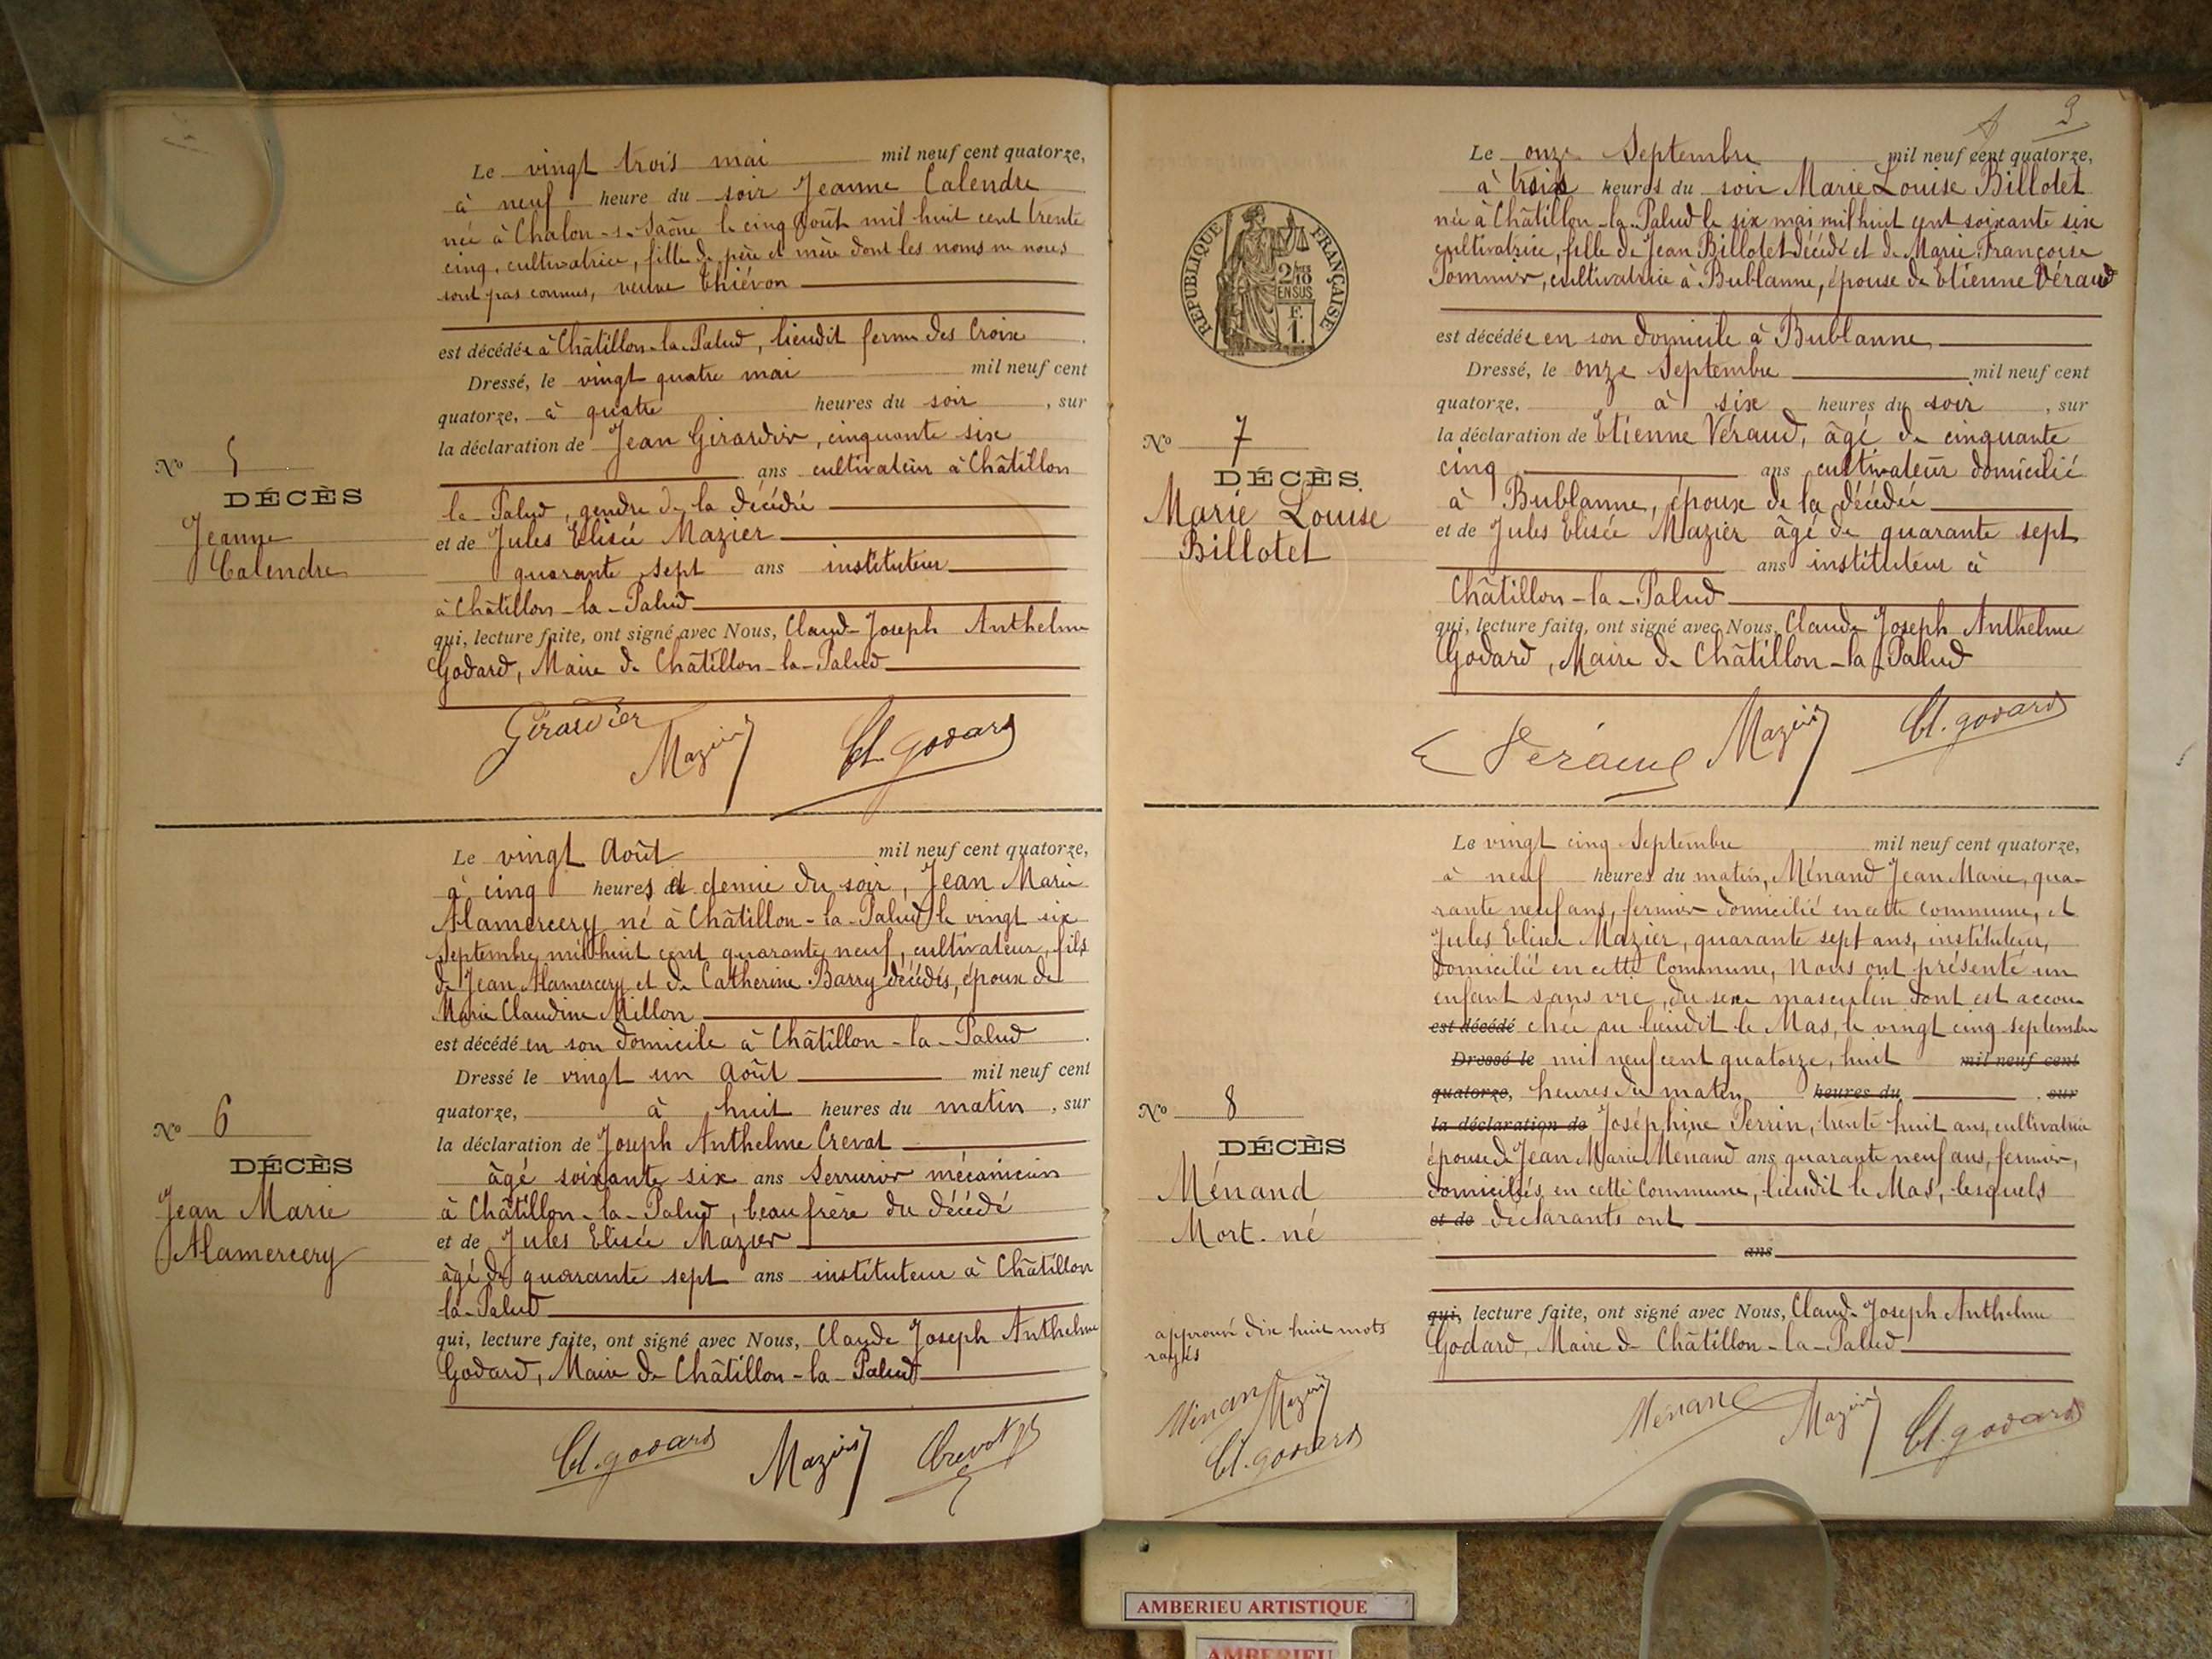 Le vingt trois mai mil neuf cent quatorze,
à neuf heure du soir Jeanne Calendre
née à Chalon-s-Saône le cinq Août mil huit cent trente
cinq, cultivatrice, fille de père et mère dont les noms ne nous
sont pas connus, veuve Thiévon
est décédée à Châtillon-la-Palud, lieudit ferme des Croix
Dressé, le vingt quatre mai mil neuf cent
quatorze, à quatre heures du soir, sur
la déclaration de Jean Girardier, cinquante six
ans cultivateur à Châtillon
la-Palud, gendre de la décédée
et de Jules Elisée Mazier
quarante sept ans instituteur
à Châtillon-la-Palud
qui, lecture faite, ont signé avec Nous, Claude Joseph Anthelme
Godard, Maire de Châtillon-la-Palud
Girardier Mazier Cl. godard
No 5
DÉCÈS
Jeanne
Calendre
Le vingt Août mil neuf cent quatorze,
à cinq heures et demie du soir, Jean Marie
Alamercery né à Châtillon-la-Palud le vingt six
Septembre mil huit cent quarante neuf, cultivateur, fils
de Jean Alamercery et de Catherine Barry décédés, époux de
Marie Claudine Millon
est décédé en son domicile à Châtillon-la-Palud
Dressé le vingt un Août mil neuf cent
quatorze, à huit heures du matin, sur
la déclaration de Joseph Anthelme Crevat
âgé soixante six ans Serrurier mécanicien
à Châtillon-la-Palud, beau frère du décédé
et de Jules Elisée Mazier
âgé de quarante sept ans instituteur à Châtillon
la-Palud
qui, lecture faite, ont signé avec Nous, Claude Joseph Anthelme
Godard, Maire de Châtillon-la-Palud
Cl. godard Mazier Crevat
No 6
DÉCÈS
Jean Marie
Alamercery
3
Le onze Septembre mil neuf cent quatorze,
à trois heures du soir Marie Louise Billotet
née à Châtillon-la-Palud le six mai mil huit cent soixante six
cultivatrice, fille de Jean Billotet décédé et de Marie Françoise
Pommier, cultivatrice à Bublanne, épouse de Etienne Véraud
est décédée en son domicile à Bublanne
Dressé, le onze Septembre mil neuf cent
quatorze, à six heures du soir, sur
la déclaration de Etienne Véraud, âgé de cinquante
cinq ans cultivateur domicilié
à Bublanne, époux de la décédée
et de Jules Elisée Mazier âgé de quarante sept
ans instituteur à
Châtillon-la-Palud
qui, lecture faite, ont signé avec Nous, Claude Joseph Anthelme
Godard, Maire de Châtillon-la-Palud
E Véraud Mazier Cl. godard
RÉPUBLIQUE FRANÇAISE
2/10
EN SUS
F.
1.
No 7
DÉCÈS
Marie Louise
Billotet
Le vingt cinq Septembre mil neuf cent quatorze,
à neuf heures du matin, Ménand Jean Marie, qua-
rante neuf ans, fermier domicilié en cette commune, et
Jules Elisée Mazier, quarante sept ans, instituteur,
domicilié en cette Commune, Nous ont présenté un
enfant sans vie, du sexe masculin dont est accou-
est décédé chée au lieudit le Mas, le vingt cinq septembre
Dressé le mil neuf cent quatorze, huit mil neuf cent
quatorze, heures du matin heures du, sur
la déclaration de Joséphine Perrin, trente huit ans, cultivatrice
épouse de Jean Marie Ménand ans quarante neuf ans, fermier,
domiciliés en cette Commune, lieudit le Mas, lesquels
et de déclarants ont
ans
qui, lecture faite, ont signé avec Nous, Claude Joseph Anthelme
Godard, Maire de Châtillon-la-Palud
Menand Mazier Cl. godard
No 8
DÉCÈS
Ménand
Mort-né
approuvé dix huit mots
rayés
Menand Mazier
Cl. godard
AMBERIEU ARTISTIQUE
AMBERIEU